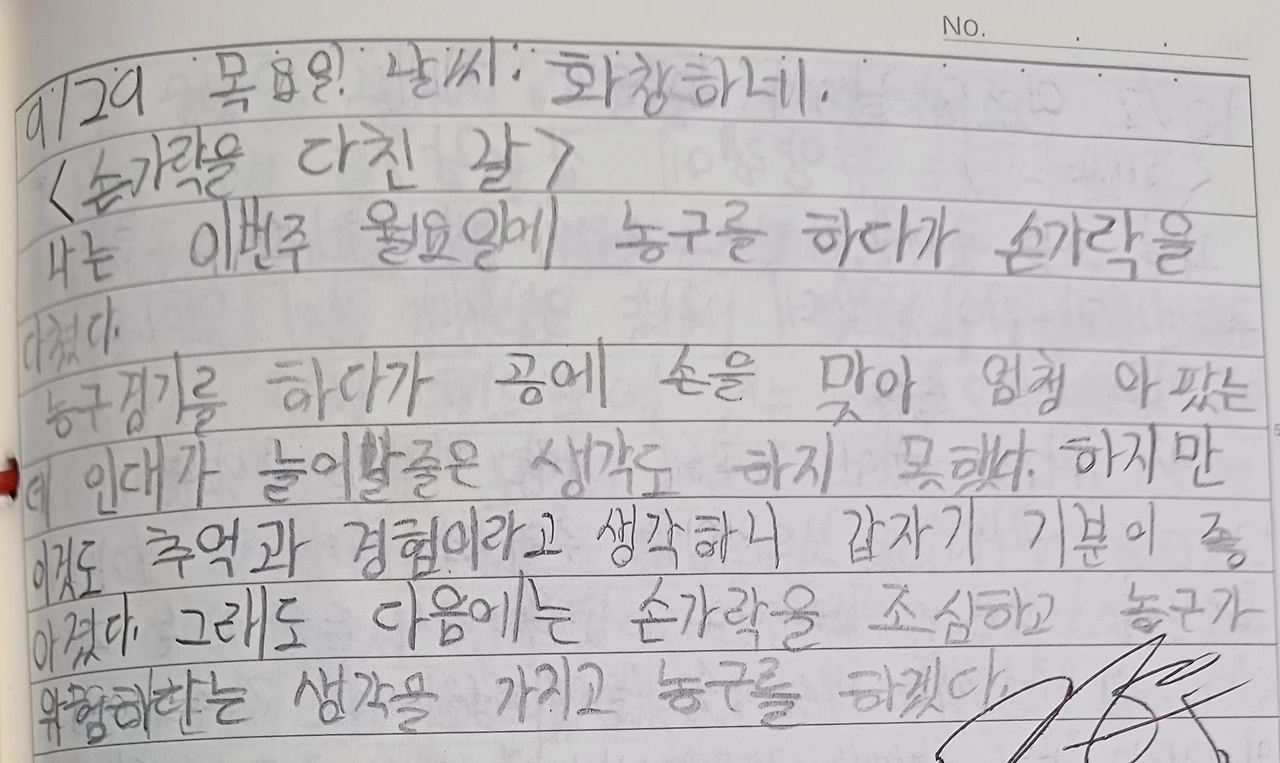 No.
9/29 목요일! 날씨: 화창하네.
<손가락을 다친 날>
나는 이번주 월요일에 농구를 하다가 손가락을
다쳤다.
농구경기를 하다가 공에 손을 맞아 엄청 아팠는
데 인대가 늘어날줄은 생각도 하지 못했다. 하지만
이것도 추억과 경험이라고 생각하니 갑자기 기분이 좋
아졌다. 그래도 다음에는 손가락을 조심하고 농구가
위험하다는 생각을 가지고 농구를 하겠다.